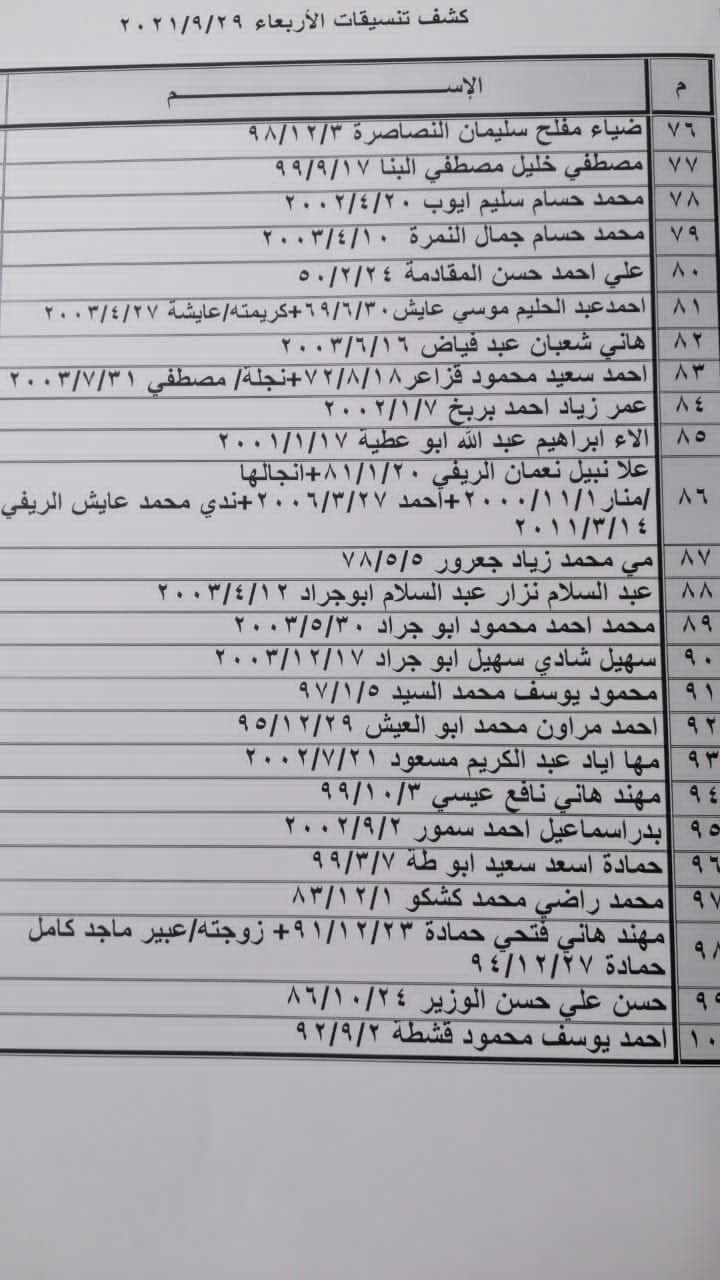 كشف تنسيقات الأربعاء ٢٠٢١/٩/٢٩
م الإســـــــــم
٧٦ ضياء مفلح سليمان النصاصرة ٩٨/١٢/٣
٧٧ مصطفي خليل مصطفي البنا ٩٩/٩/١٧
٧٨ محمد حسام سليم ايوب ٢٠٠٢/٤/٢٠
٧٩ محمد حسام جمال النمرة ٢٠٠٣/٤/١٠
٨٠ علي احمد حسن المقادمة ٥٠/٢/٢٤
٨١ احمدعبد الحليم موسي عايش٦٩/٦/٣٠+كريمته/عايشة ٢٠٠٣/٤/٢٧
٨٢ هاني شعبان عبد فياض ٢٠٠٣/٦/١٦
٨٣ احمد سعيد محمود قزاعر٧٢/٨/١٨+نجلة/ مصطفي ٢٠٠٣/٧/٣١
٨٤ عمر زياد احمد بربخ ٢٠٠٢/١/٧
٨٥ الاء ابراهيم عبد الله ابو عطية ٢٠٠١/١/١٧
٨٦ علا نبيل نعمان الريفي ٨١/١/٢٠+انجالها
/منار٢٠٠٠/١١/١+احمد ٢٠٠٦/٣/٢٧+ندي محمد عايش الريفي
٢٠١١/٣/١٤
٨٧ مي محمد زياد جعرور ٧٨/٥/٥
٨٨ عبد السلام نزار عبد السلام ابوجراد ٢٠٠٣/٤/١٢
٨٩ محمد احمد محمود ابو جراد ٢٠٠٣/٥/٣٠
٩٠ سهيل شادي سهيل ابو جراد ٢٠٠٣/١٢/١٧
٩١ محمود يوسف محمد السيد ٩٧/١/٥
٩٢ احمد مراون محمد ابو العيش ٩٥/١٢/٢٩
٩٣ مها اياد عبد الكريم مسعود ٢٠٠٢/٧/٢١
٩٤ مهند هاني نافع عيسي ٩٩/١٠/٣
٩٥ بدراسماعيل احمد سمور ٢٠٠٢/٩/٢
٩٦ حمادة اسعد سعيد ابو طة ٩٩/٣/٧
٩٧ محمد راضي محمد كشكو ٨٣/١٢/١
٩٨ مهند هاني فتحي حمادة ٩١/١٢/٢٣+ زوجته/عبير ماجد كامل
حمادة ٩٤/١٢/٢٧
٩٩ حسن علي حسن الوزير ٨٦/١٠/٢٤
١٠ احمد يوسف محمود قشطة ٩٢/٩/٢